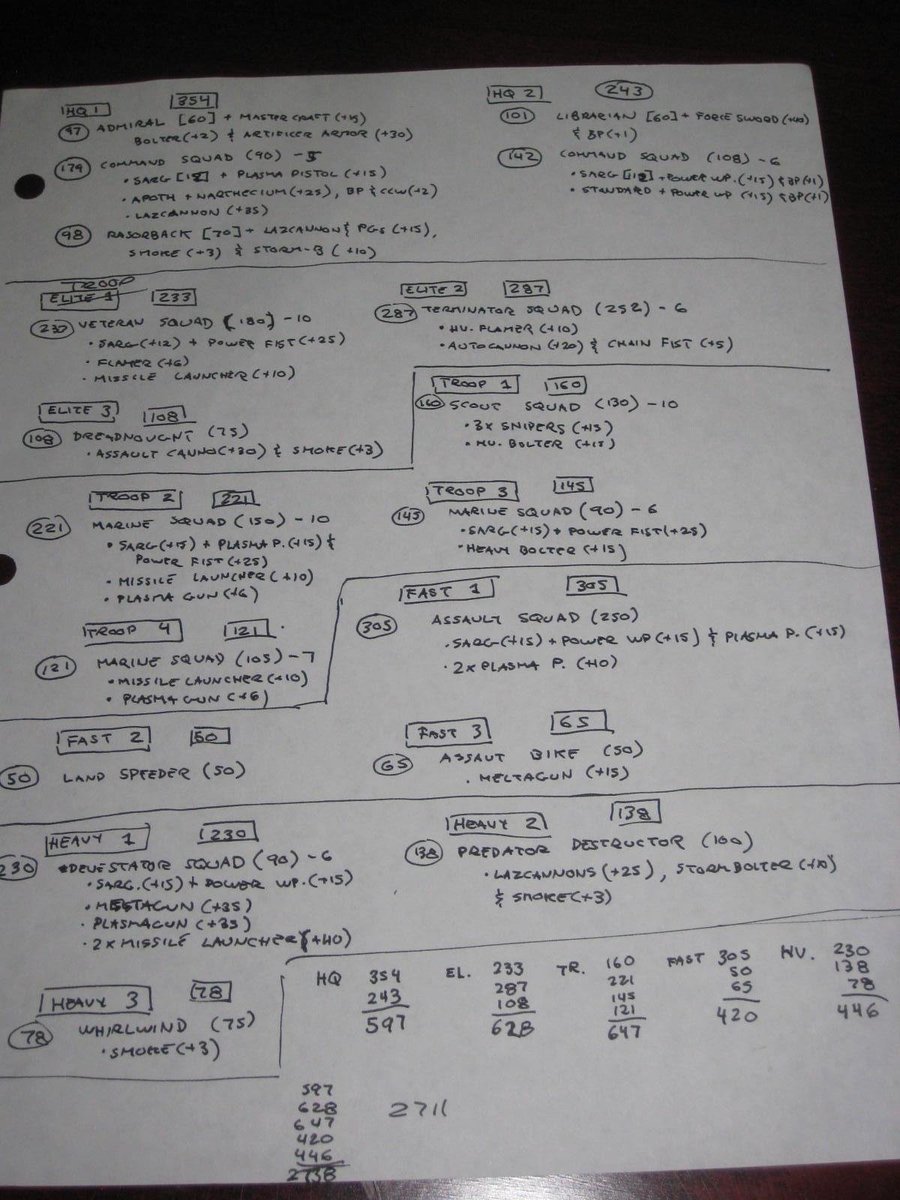 HQ 1 354
97 ADMIRAL [60] + MASTER CRAFT (+15)
BOLTER (+2) & ARTIFICER ARMOR (+30)
179 COMMAND SQUAD (90) - 5
• SARG [12] + PLASMA PISTOL (+15)
• APOTH + NARTHECIUM (+25), BP & CCW (+2)
• LAZCANNON (+35)
98 RASORBACK [70] + LAZCANNON & PGS (+15),
SMOKE (+3) & STORM-B (+10)
HQ 2 243
101 LIBRARIAN [60] + FORCE SWORD (+40)
& BP (+1)
142 COMMAUD SQUAD (108) - 6
• SARG [12] + POWER WP. (+15) & BP (+1)
• STANDARD + POWER WP (+15) & BP (+1)
TROOP
ELITE 1 233
VETERAN SQUAD (180) - 10
• SARG (+12) + POWER FIST (+25)
• FLAMER (+6)
• MISSILE LAUNCHER (+10)
ELITE 2 287
287 TERMINATOR SQUAD (252) - 6
• HV. FLAMER (+10)
• AUTOCANNON (+20) & CHAIN FIST (+5)
ELITE 3 108
108 DREADNOUGNT (75)
• ASSAULT CANNO (+30) & SMOKE (+3)
TROOP 1 160
160 SCOUT SQUAD (130) - 10
• 3X SNIPERS (+15)
• HV. BOLTER (+15)
TROOP 2 221
221 MARINE SQUAD (150) - 10
• SARG (+15) + PLASMA P. (+15) &
POWER FIST (+25)
• MISSILE LAUNCHER (+10)
• PLASMA GUN (+6)
TROOP 3 145
145 MARINE SQUAD (90) - 6
• SARG (+15) + POWER FIST (+25)
• HEAVY BOLTER (+15)
TROOP 4 121
121 MARINE SQUAD (105) - 7
• MISSILE LAUNCHER (+10)
• PLASMA GUN (+6)
FAST 1 305
305 ASSAULT SQUAD (250)
• SARG (+15) + POWER WP (+15) & PLASMA P. (+15)
• 2X PLASMA P. (+10)
FAST 2 50
50 LAND SPEEDER (50)
FAST 3 65
65 ASSAUT BIKE (50)
• MELTAGUN (+15)
HEAVY 1 230
230 DEVESTATOR SQUAD (90) - 6
• SARG. (+15) + POWER WP. (+15)
• (+35)
• PLASMAGUN (+35)
• 2X MISSILE LAUNCHER (+40)
HEAVY 2 138
138 PREDATOR DESTRUCTOR (100)
• LAZCANNONS (+25), STORMBOLTER (+10)
& SMOKE (+3)
HEAVY 3 78
78 WHIRLWIND (75)
• SMOKE (+3)
HQ 354
243
597
EL. 233
287
108
628
TR. 160
221
145
121
647
FAST 305
50
65
420
HV. 230
138
78
446
597
628
647
420
446
2738
2711